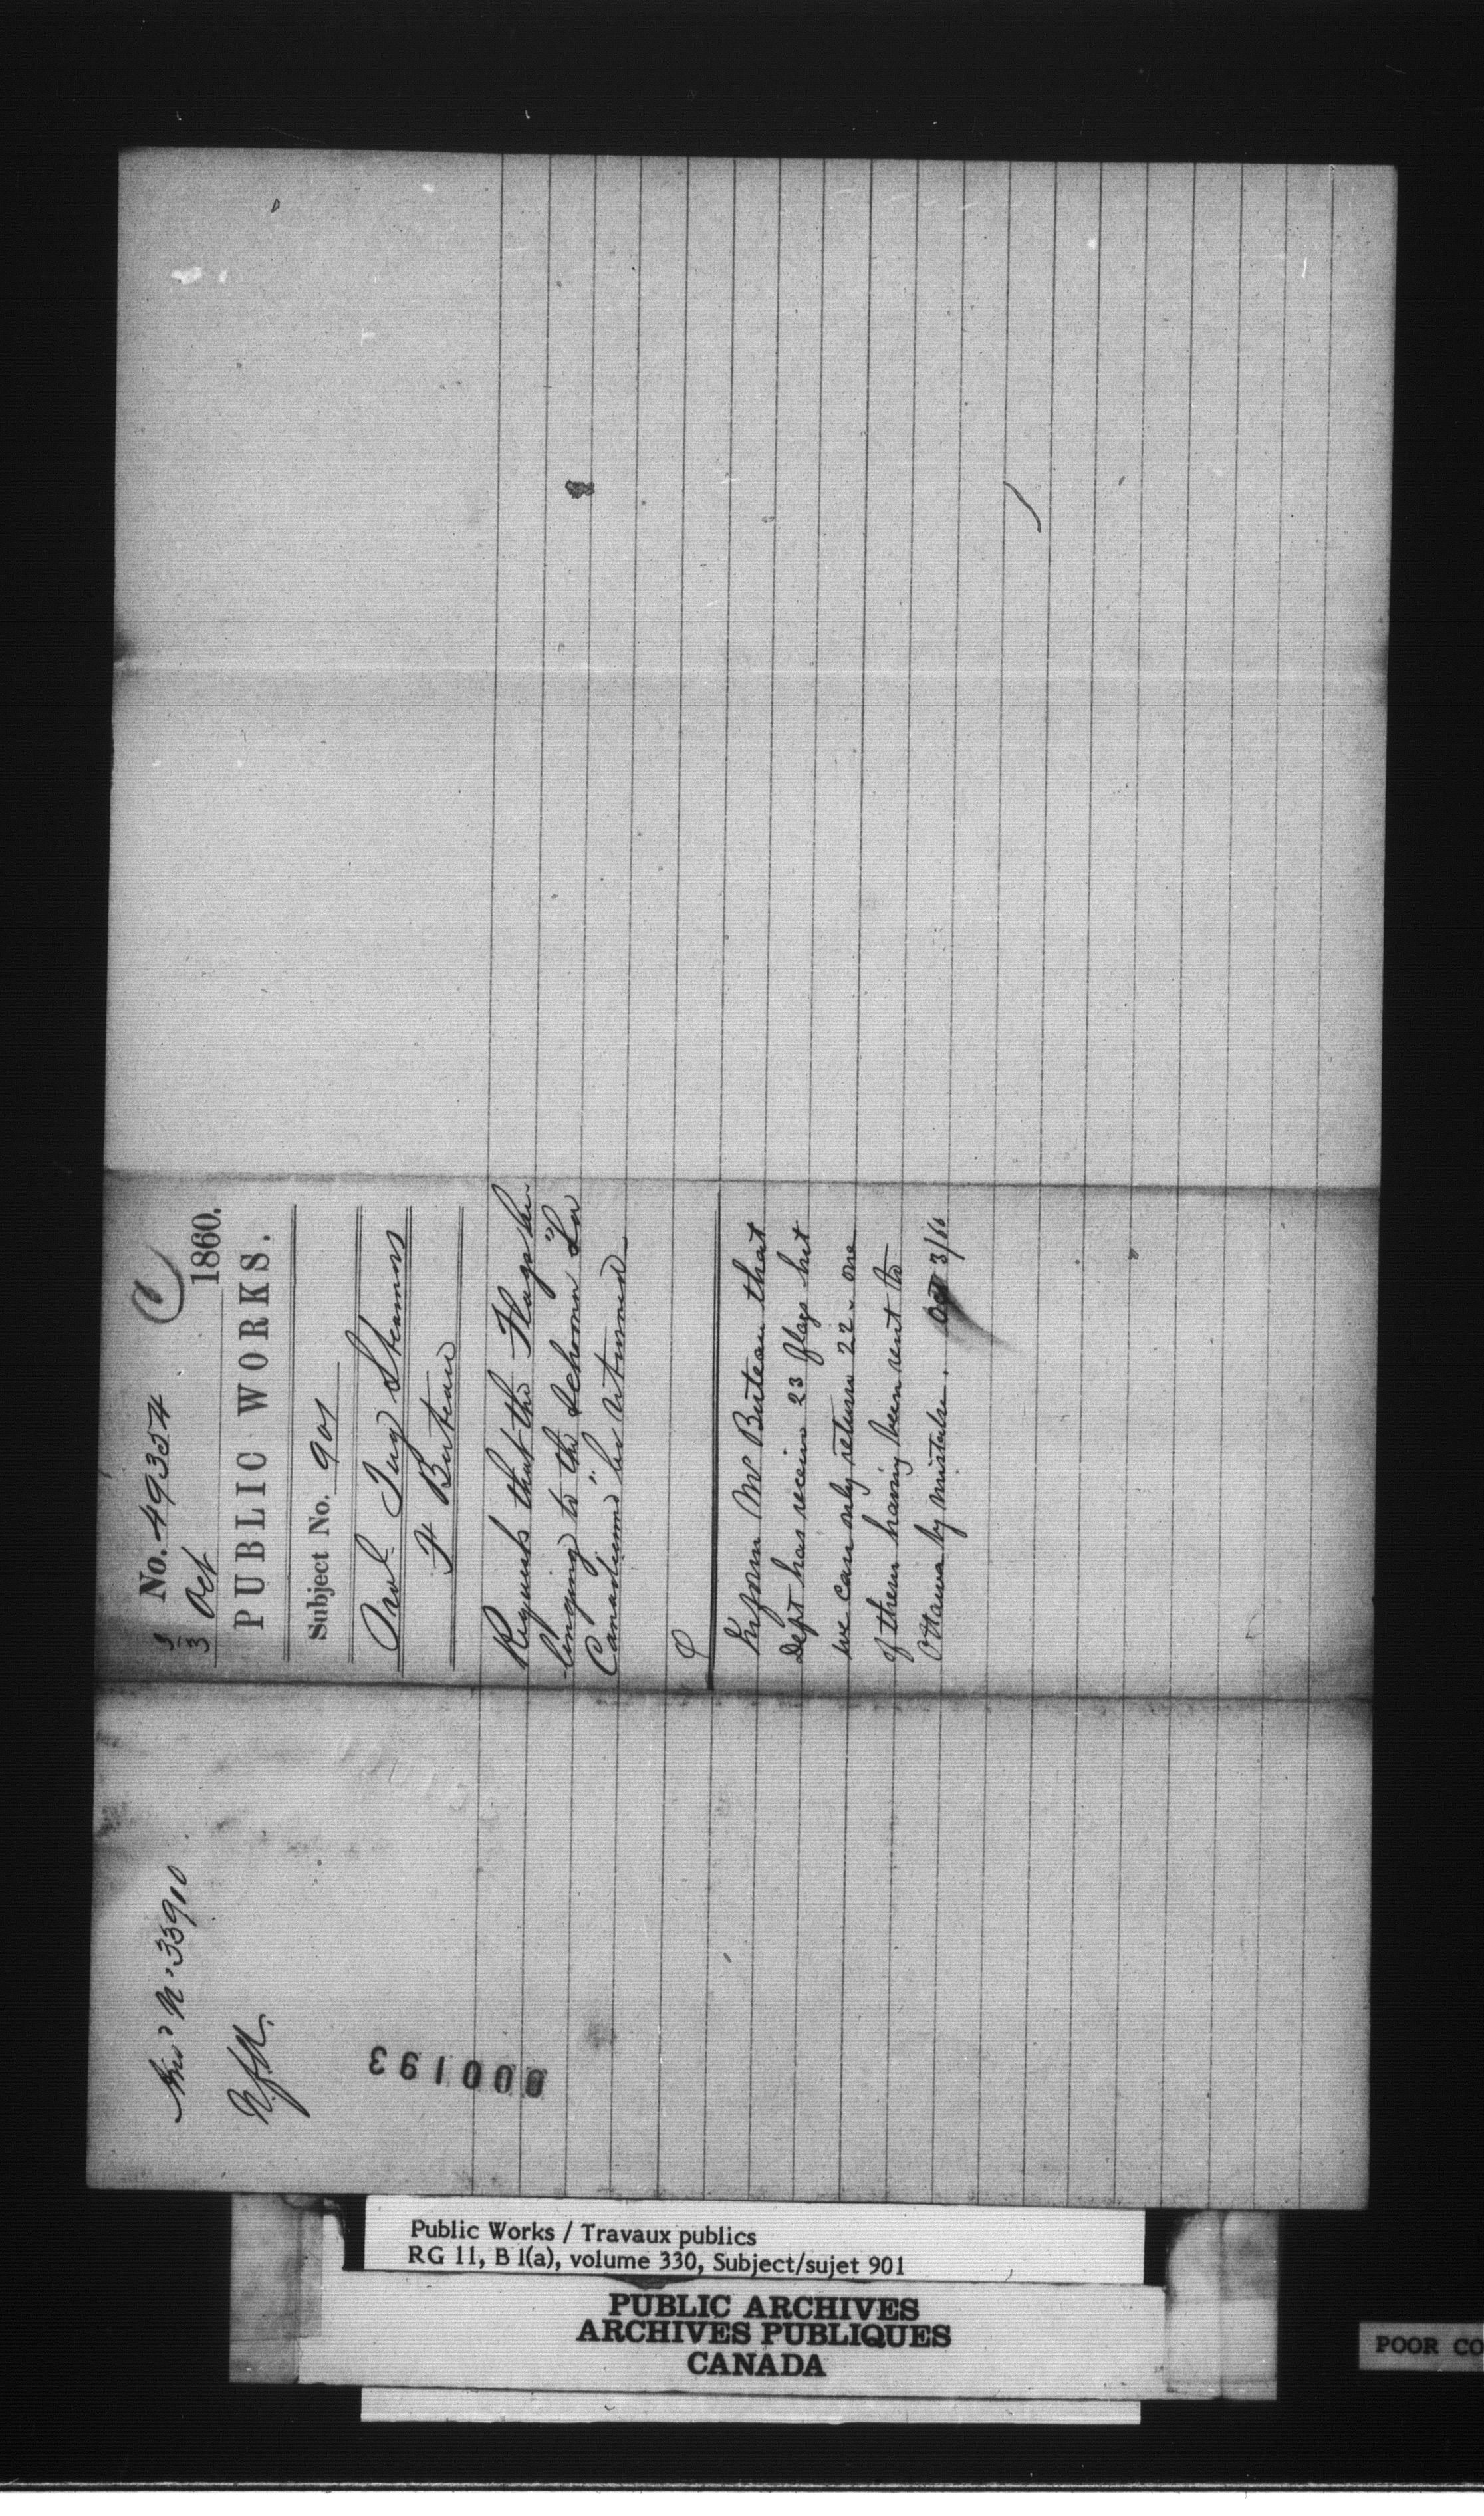 No. 49354
3/3 Oct 1860.
PUBLIC WORKS.
Subject No. 901
Prov.l Tug Steamers
F Buteau
Requests that the Flags be-
longing to the Schooner "La
Canadienne" be returned
Inform Mr Buteau that
Dept has receive 23 flags but
we can only return 22. one
of them having been sent to
Ottawa by mistake. Oct 3/60
Ansd No. 33910
000193
Public Works / Travaux publics
RG 11, B 1(a), volume 330, Subject/sujet 901
PUBLIC ARCHIVES
ARCHIVES PUBLIQUES
CANADA
POOR CO